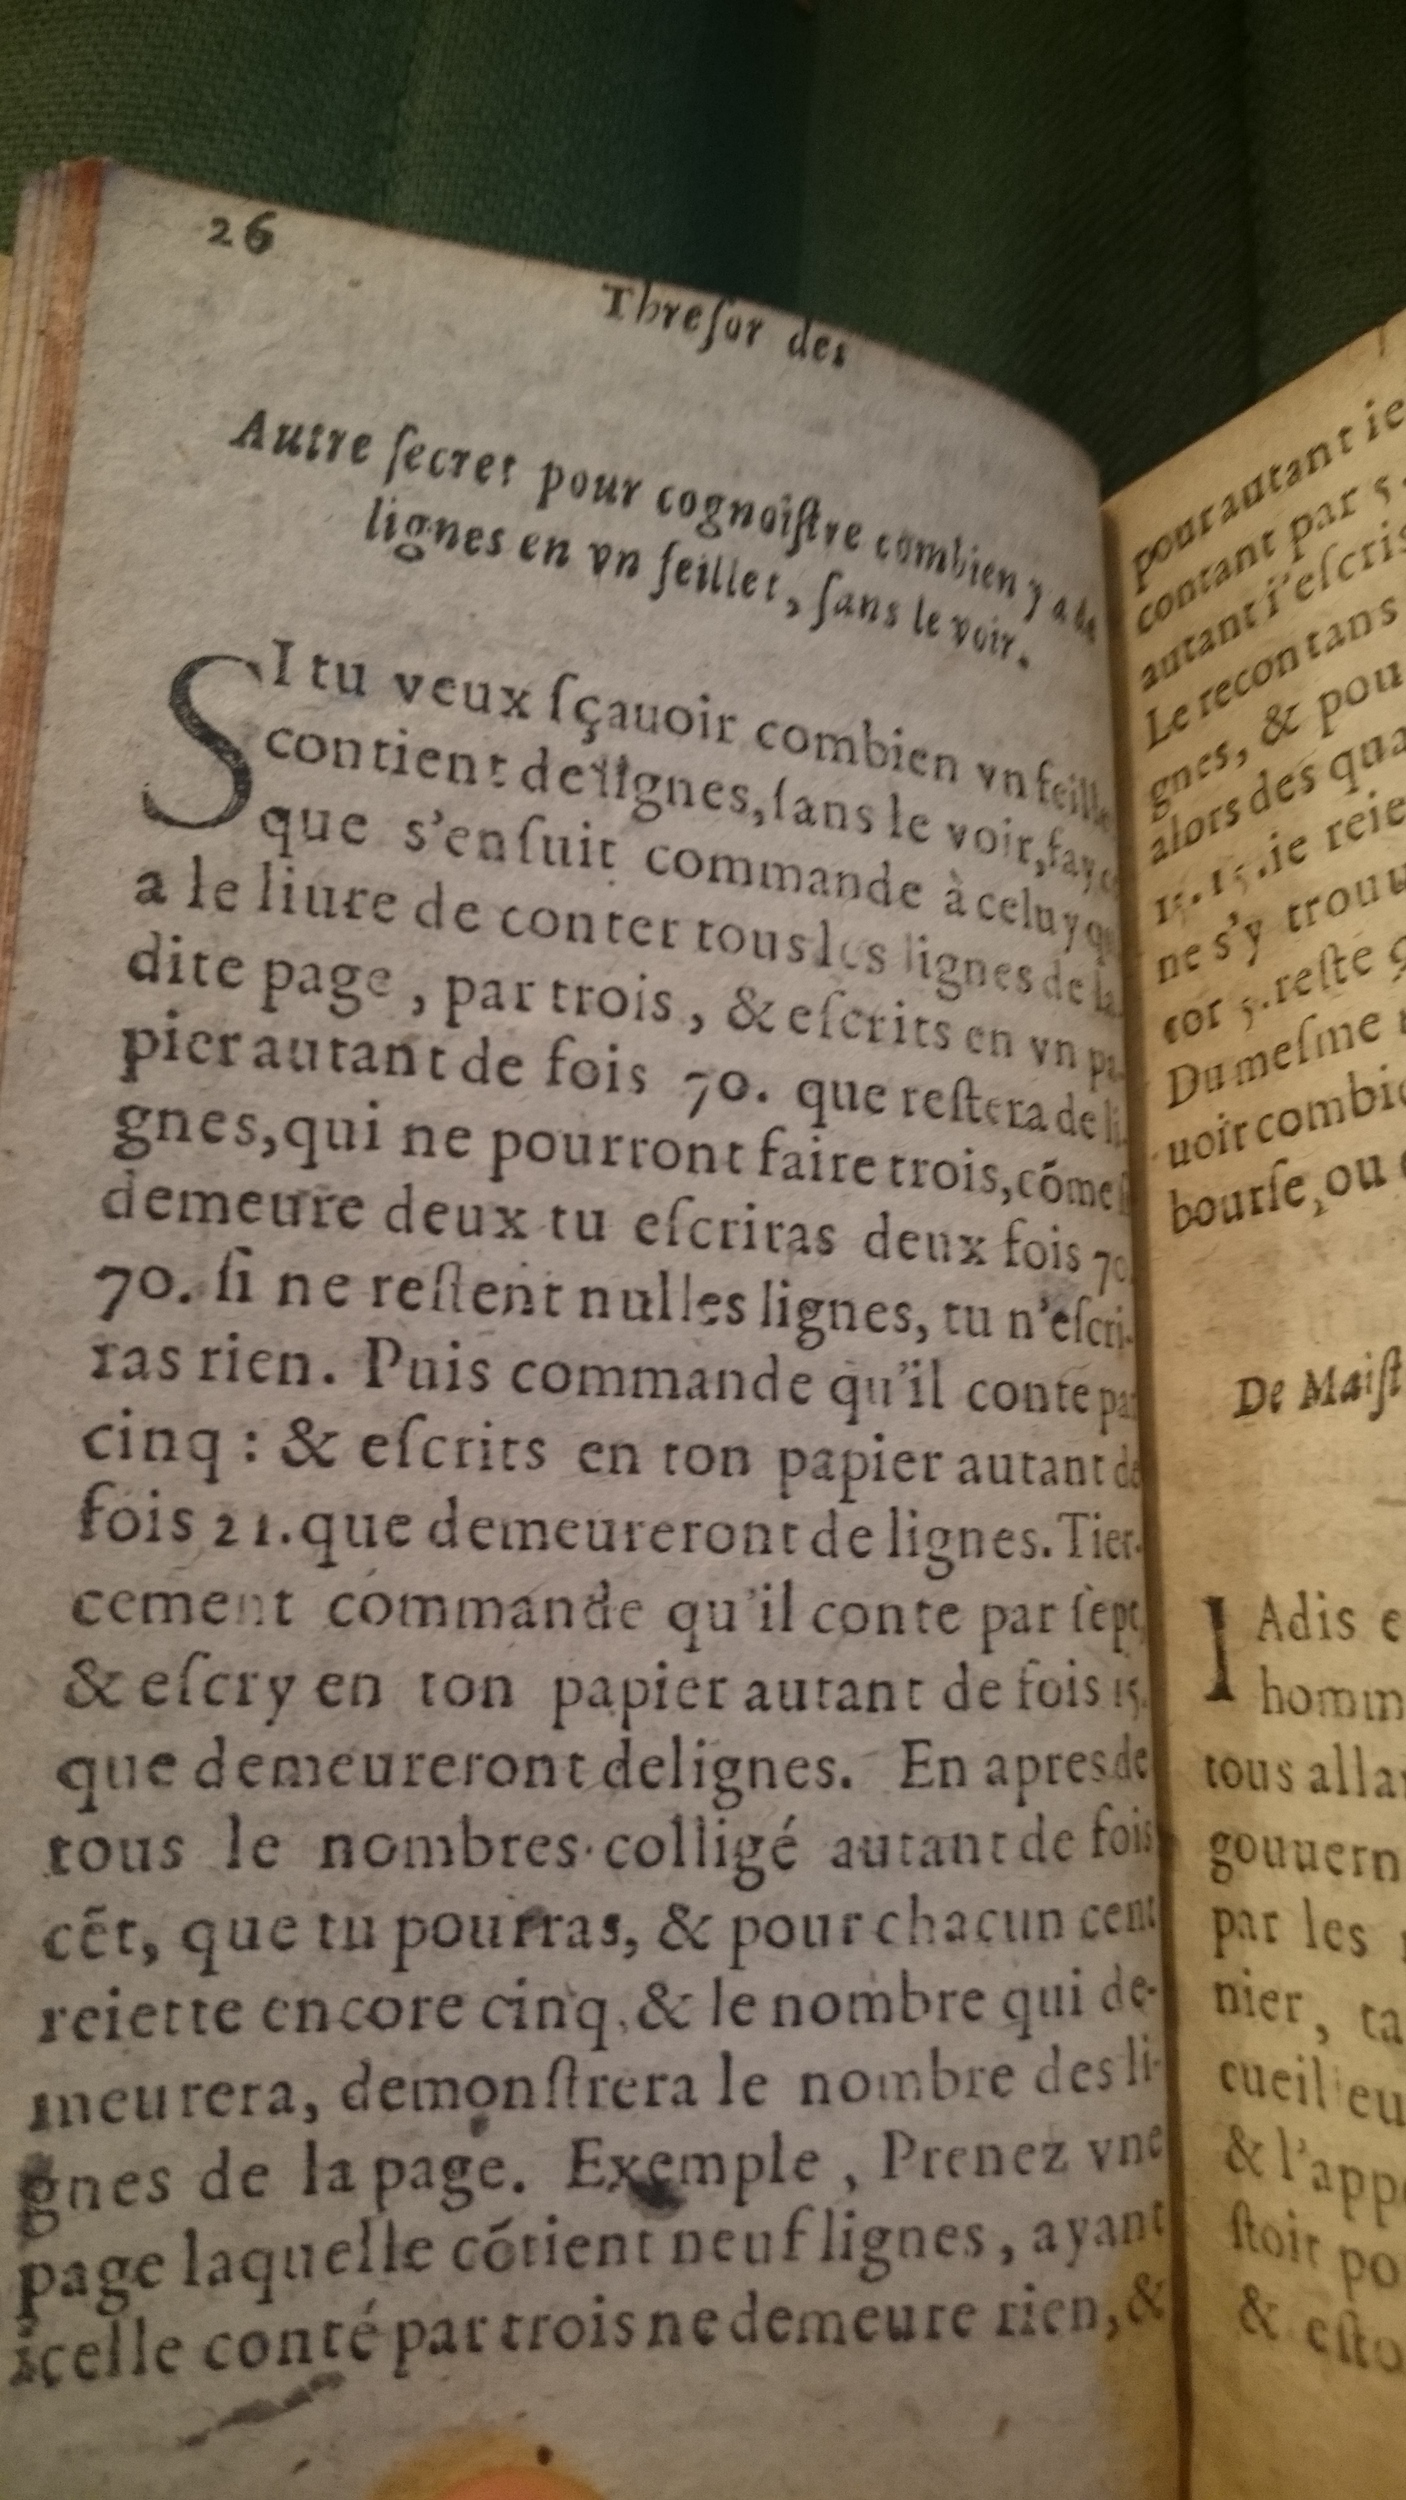 26
Threſor des
Autre ſecret pour cognoiſtre combien y a de
lignes en vn feillet, ſans le voir.
SI tu veux ſçauoir combien vn feille
contient de lignes, ſans le voir, fay ce
que s'enſuit commande à celuy qui
a le liure de conter tous les lignes de la
dite page, par trois, & eſcrits en vn pa-
pier autant de fois 70. que reſtera de li-
gnes, qui ne pourront faire trois, cõme ſi
demeure deux tu eſcriras deux fois 70
70. ſi ne reſtent nulles lignes, tu n'eſcri-
ras rien. Puis commande qu'il conte par
cinq : & eſcrits en ton papier autant de
fois 21. que demeureront de lignes. Tier-
cement commande qu'il conte par ſept,
& eſcry en ton papier autant de fois 15.
que demeureront de lignes. En apres de
tous le nombres colligé autant de fois
cẽt, que tu pourras, & pour chacun cent
reiette encore cinq, & le nombre qui de-
meurera, demonſtrera le nombre des li-
gnes de la page. Exemple, Prenez vne
page laquelle cõtient neuf lignes, ayant
icelle conté par trois ne demeure rien, &
pour autant ie
contant par 5.
autant i'eſcris
Le recontans
gnes, & pou
alors des qua
15. 15. ie reie
ne s'y trouu
cor 5. reſte
Du meſme
uoir combie
bourſe, ou
De Maiſt
IAdis e
homm
tous alla
gouuern
par les
nier, ta
cueilleu
& l'app
ſtoit po
& eſto